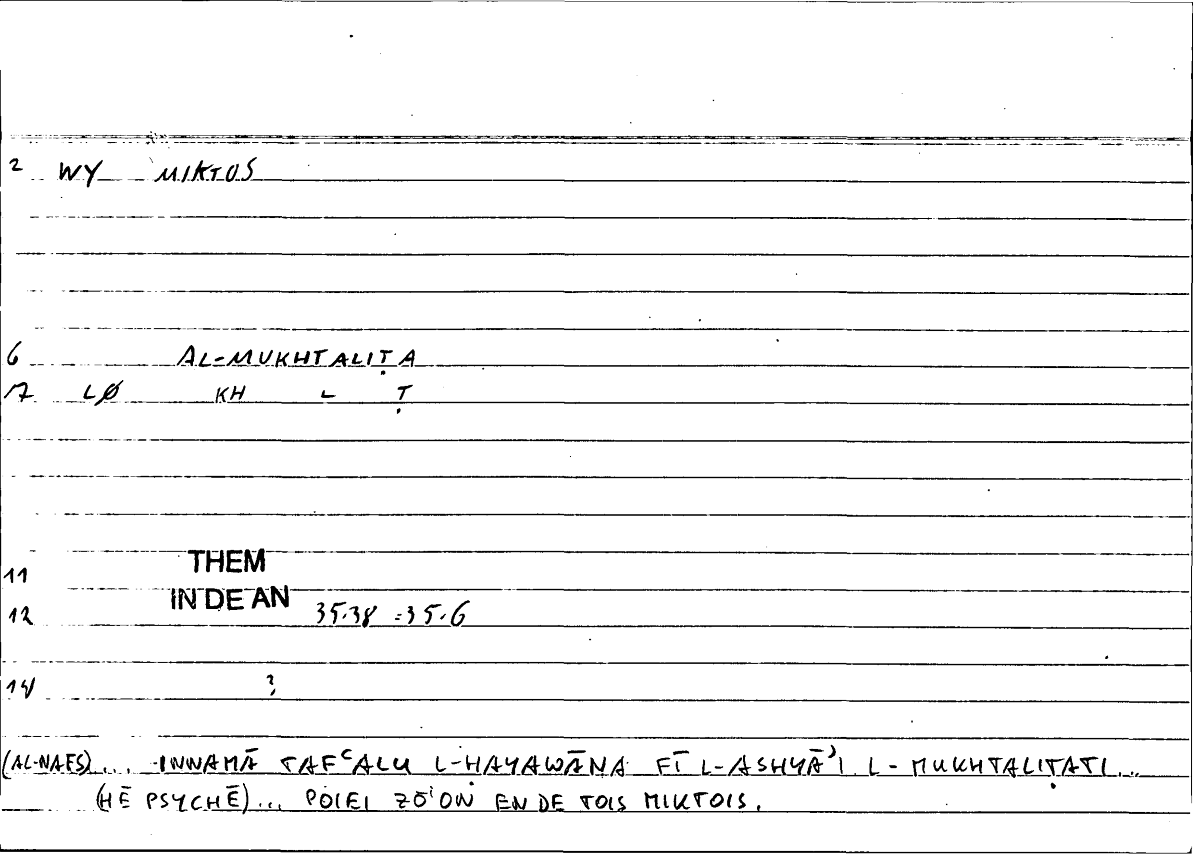 2 WY MIKTOS
6 AL-MUKHTALIṬA
17 LØ KH L Ṭ
11 THEM
12 IN DE AN 35.38 = 35.6
14 ?
(AL-NAFS)... INNAMĀ TAFʿALU L-HAYAWĀNA FĪ L-ASHYĀʾI L-MUKHTALIṬATI...
(HĒ PSYCHĒ)... POIEI ZŌION EN DE TOIS MIKTOIS.